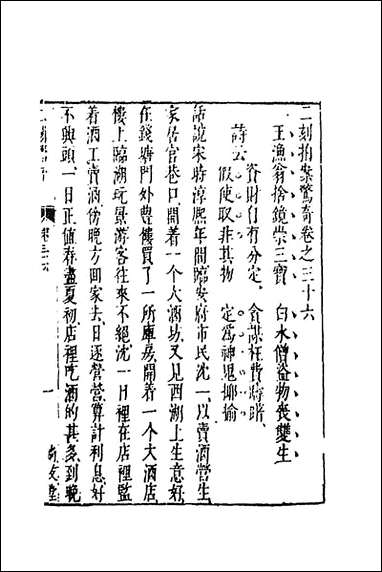 二刻拍案驚奇卷之三十六
王漁翁捨鏡崇三寶 白水僧盜物喪雙生
詩云
資財自有分定 貪謀枉費躊躇
假使取非其物 定爲神鬼揶揄
話說宋時淳熙年間臨安府市民沈一以賣酒營生
家居官巷口開着一个大酒坊又見西湖上生意好
在錢塘門外豊樓買了一所庫房開着一个大酒店
樓上臨湖玩景游客往來不絕沈一日裡在店裡監
着酒工賣酒傍晚方回家去日逐營營算計利息好
不興頭一日正值春盡夏初店裡吃酒的甚多到晚
卷三六
一
尚友堂